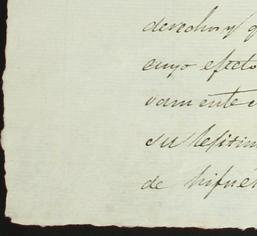 derechos y q
cuyo efecto
vamente
su lejitim
de hipnel